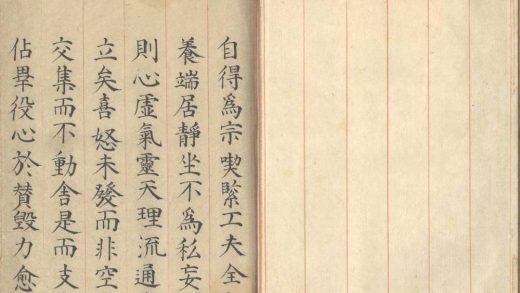 自得爲宗喫緊工夫全
養端居靜坐不爲私妄
則心虛氣靈天理流通
立矣喜怒未發而非空
交集而不動舍是而支
佔畢役心於贊毀力愈